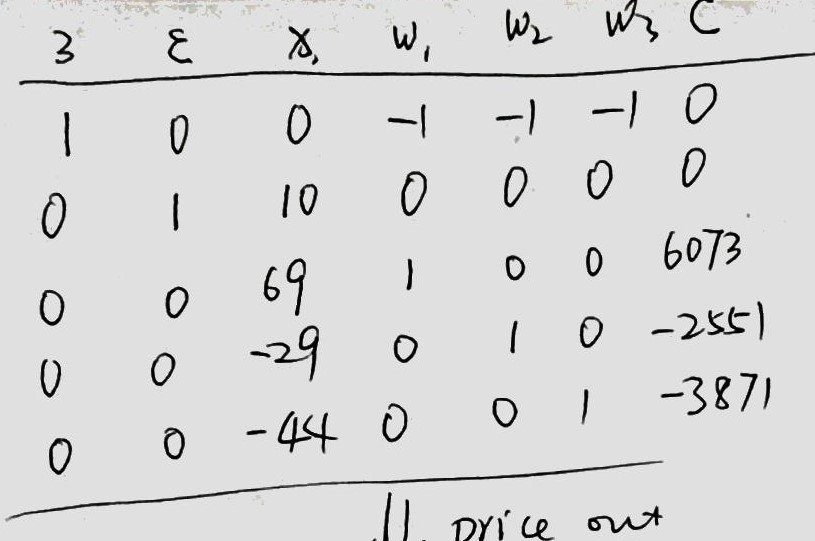 3 ε x₁ w₁ w₂ w₃ C
1 0 0 -1 -1 -1 0
0 1 10 0 0 0 0
0 0 69 1 0 0 6073
0 0 -29 0 1 0 -2551
0 0 -44 0 0 1 -3871
⇓ price out